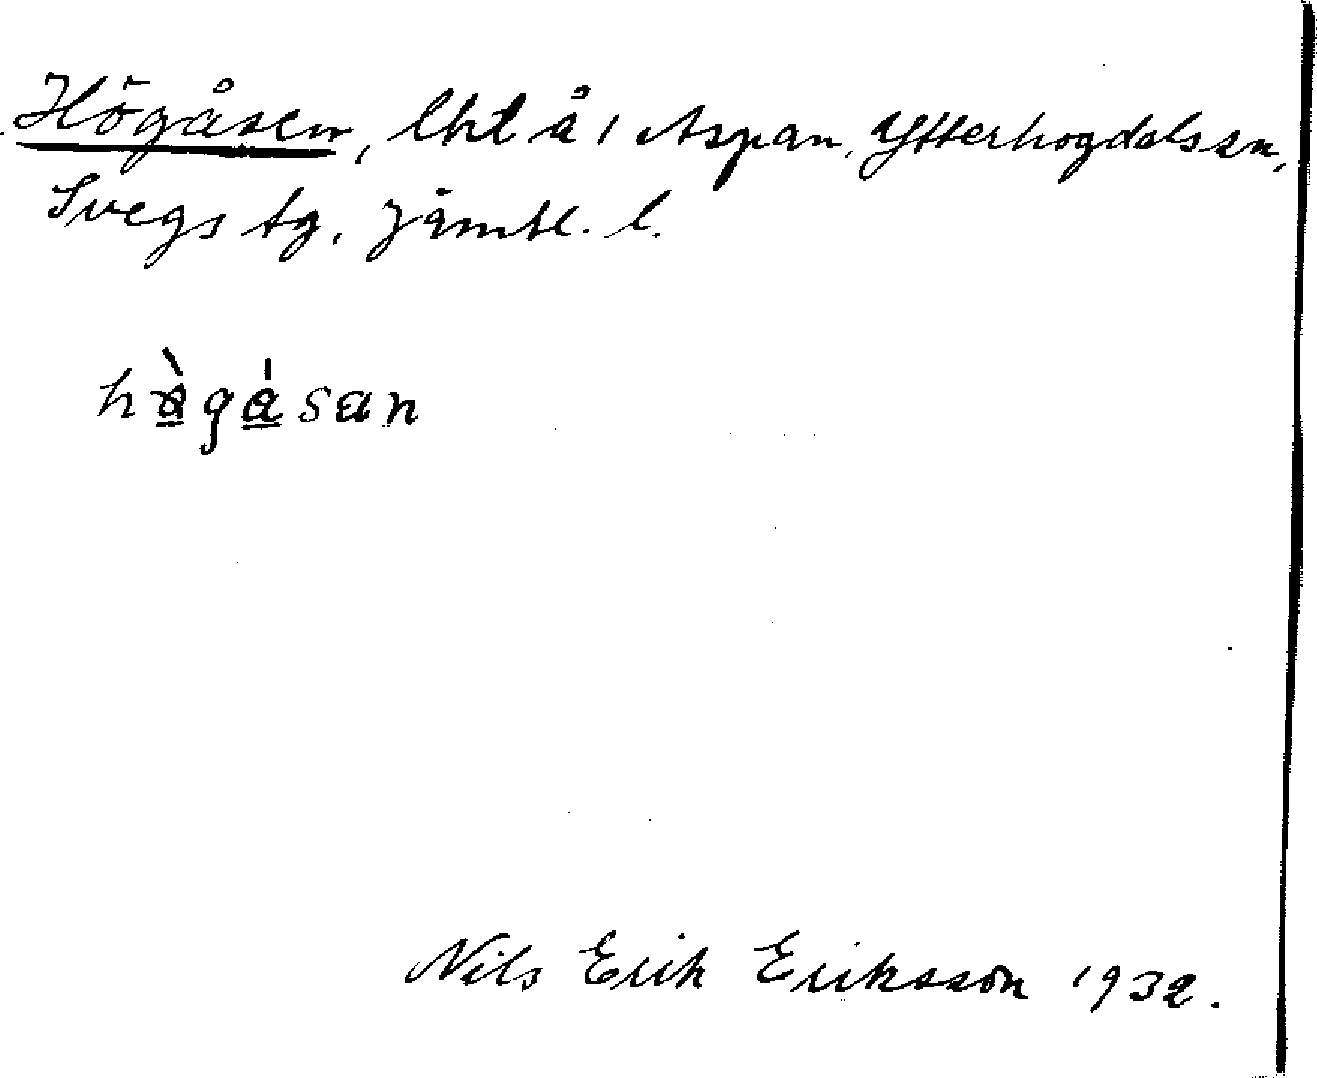 Högåsen, lht å i Aspan, Ytterhogdals sn,
Svegs tg, Jämtl. l.
hø̀gásan
Nils Erik Eriksson 1932.